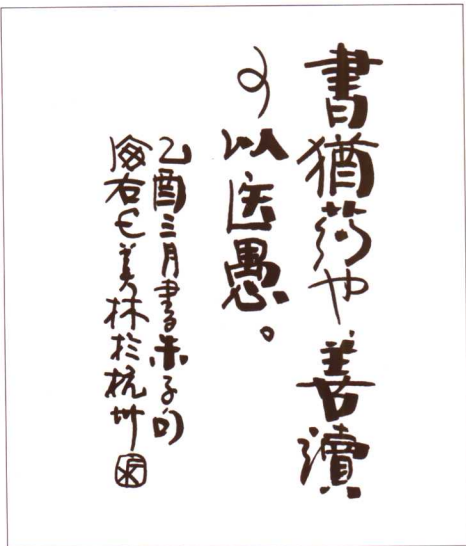 書猶药也善讀
之可以医愚。
乙酉三月書朱子句
右美林於杭州